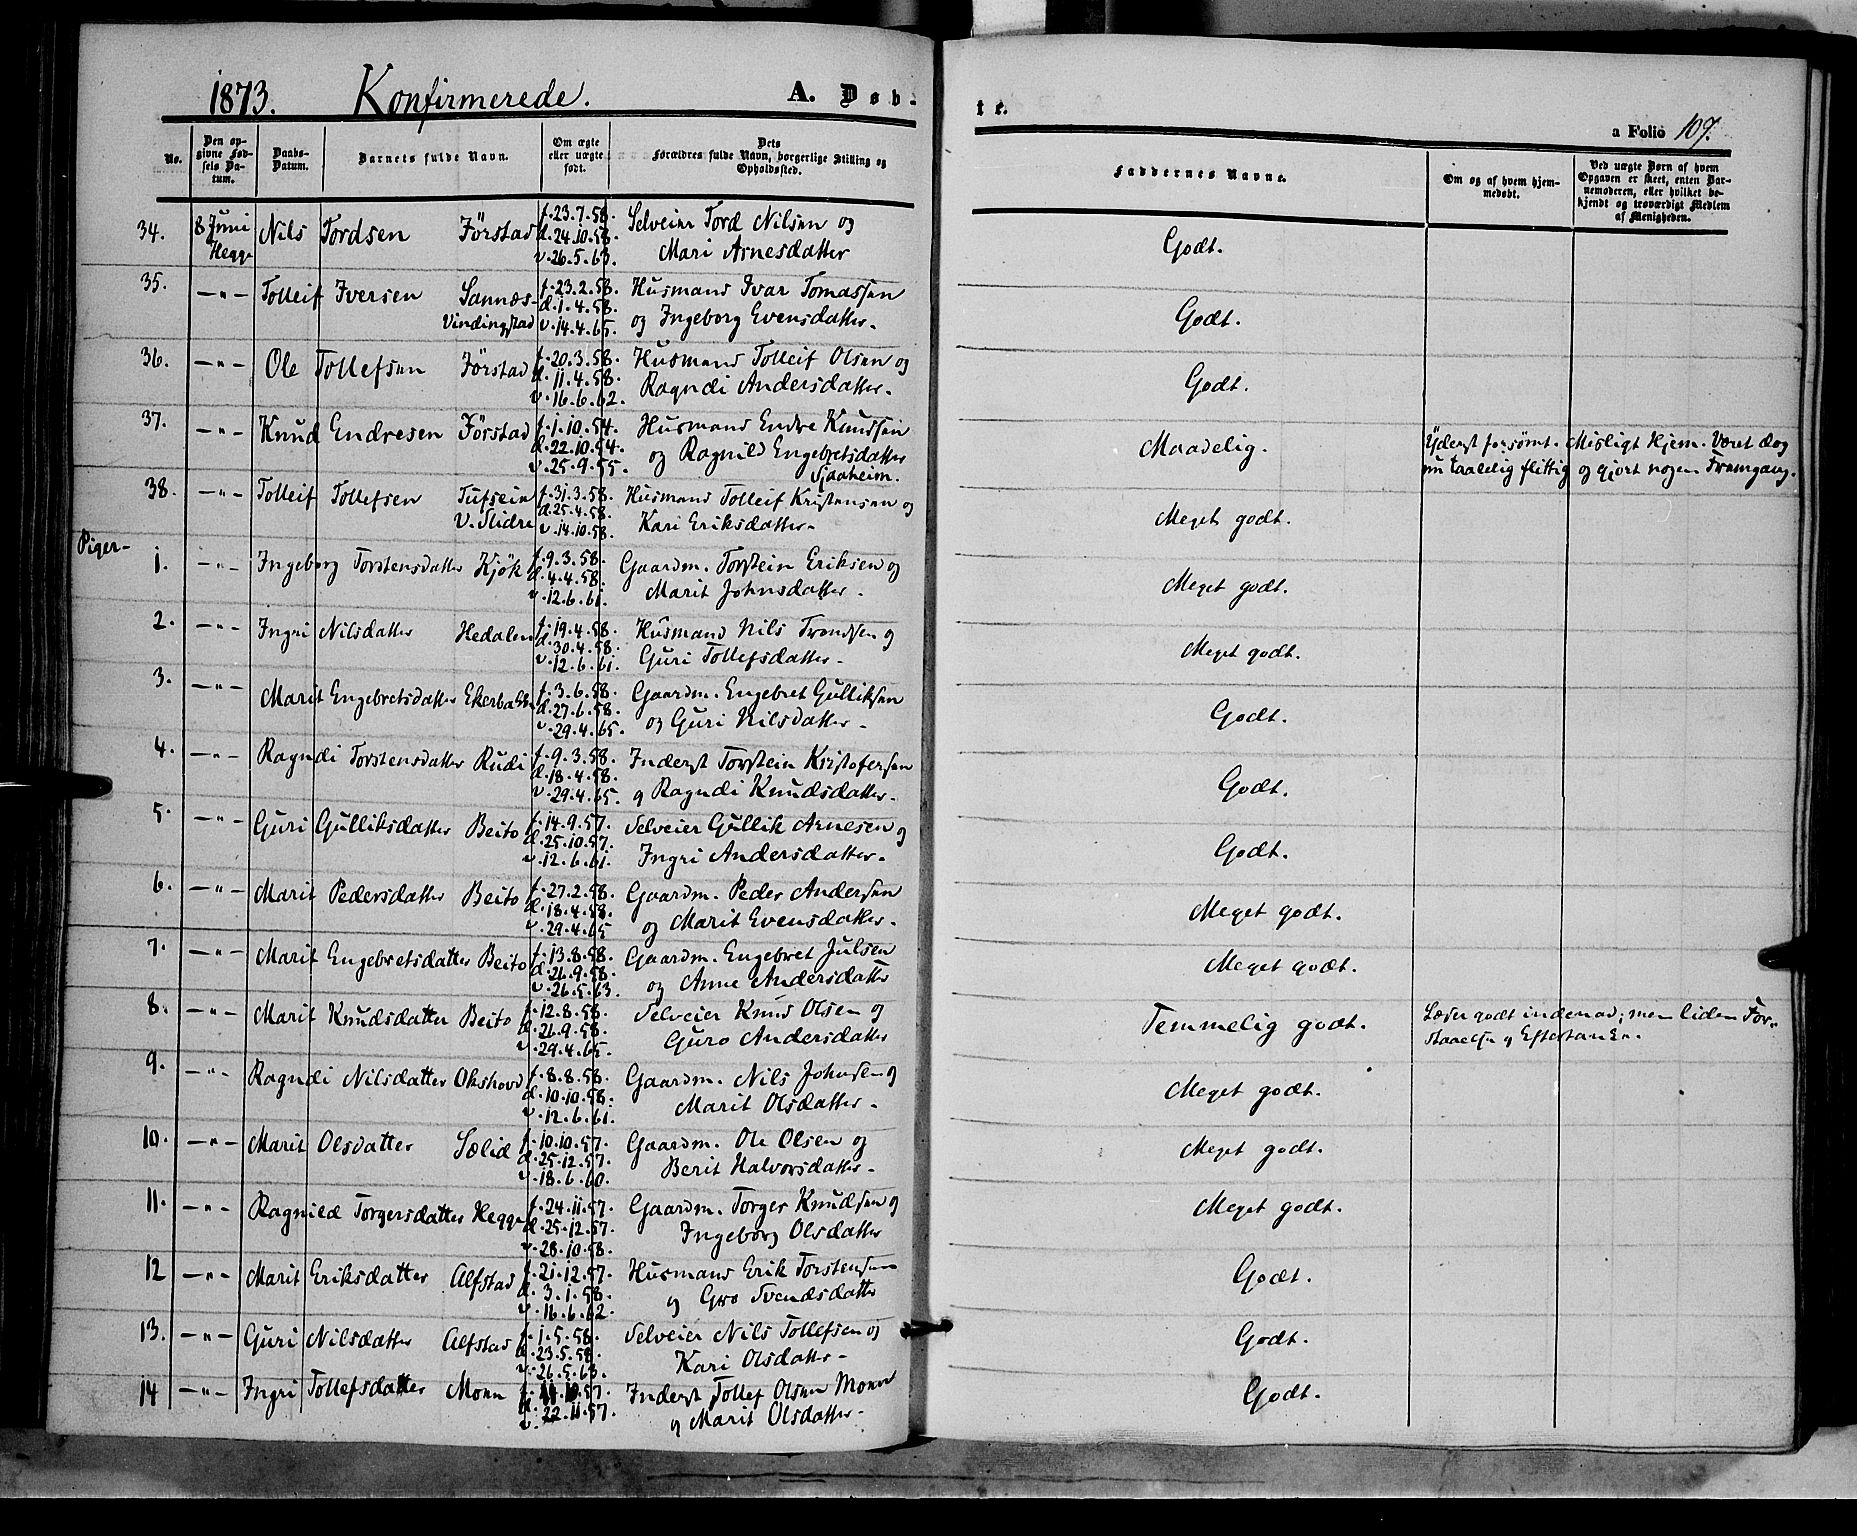 1873. Konfirmerede. A. Døb-
te.
a Folio 107.
No.
Den op-
givne Fød-
sels Da-
tum.
Daabs-
Datum.
Barnets fulde Navn.
Om ægte
eller uægte
født.
Dets
Forældres fulde Navn, borgerlige Stilling og
Opholdssted.
Faddernes Navne.
Om og af hvem hjem-
medøbt.
Ved uægte Børn af hvem
Opgaven er skeet, enten Bar-
nemoderen, eller hvilket be-
kjendt og troværdigt Medlem
af Menigheden.
34. 8 Juni Hegge Nils Tordsen Förstad f. 23.7.58. d. 24.10.58. v. 26.5.63. Selveier Tord Nilsen og
Mari Arnesdatter Godt.
35. —"— Tolleif Iversen Sannæs- f. 23.2.58. d. 1.4.58. v. 14.4.65. Husmand Ivar Tomassen
Vindingstad og Ingeborg Evensdatter. Godt.
36. —"— Ole Tollefsen Förstad f. 20.3.58. d. 11.4.58. v. 16.6.62. Husmand Tolleif Olsen og
Ragndi Andersdatter. Godt.
37. —"— Knud Endresen Förstad f. 1.10.54. d. 22.10.54. v. 25.9.55. Husmand Endre Knudsen
og Ragnild Engebretsdatter
Sjaaheim. Maadelig. Yderst forsömt. Misligt Hjem. Været dog
nu taalelig flittig og gjort nogen Framgang.
38. —"— Tolleif Tollefsen Tufsein f. 31.3.58. d. 25.4.58. v. 14.10.58. Husmand Tolleif Kristensen og
V. Slidre Kari Eriksdatter. Meget godt.
Piger-
1. —"— Ingeborg Torstensdatter Kjök f. 9.3.58. d. 4.4.58. v. 12.6.61. Gaardm. Torstein Eriksen og
Marit Johnsdatter. Meget godt.
2. —"— Ingri Nilsdatter Hedalen f. 19.4.58. d. 30.4.58. v. 12.6.61. Husmand Nils Trondsen og
Guri Tollefsdatter. Meget godt.
3. —"— Marit Engebretsdatter f. 3.6.58. d. 27.6.58. v. 29.4.65. Gaardm. Engebret Gulliksen
og Guri Nilsdatter. Godt.
4. —"— Ragndi Torstensdatter Rudi f. 9.3.58. d. 18.4.58. v. 29.4.65. Inderst Torstein Kristofersen
og Ragndi Knudsdatter. Godt.
5. —"— Guri Gulliksdatter Beito f. 14.9.57. d. 25.10.57. v. 12.6.61. Selveier Gullik Arnesen og
Ingri Andersdatter. Godt.
6. —"— Marit Pedersdatter Beito f. 27.2.58. d. 18.4.58. v. 29.4.65 Gaardm. Peder Andersen
og Marit Evensdatter. Meget godt.
7. —"— Marit Engebretsdatter Beito f. 13.8.58. d. 26.9.58. v. 26.5.63. Gaardm. Engebret Julsen
og Anne Andersdatter Meget godt.
8. —"— Marit Knudsdatter Beito f. 12.8.58. d. 26.9.58. v. 29.4.65. Selveier Knud Olsen og
Guro Andersdatter Temmelig godt. Læser godt indenad; men liden For-
staaelse og Eftertanke.
9. —"— Ragndi Nilsdatter Okshovd f. 8.8.58. d. 10.10.58. v. 12.6.61. Gaardm. Nils Johnsen og
Marit Olsdatter. Meget godt.
10. —"— Marit Olsdatter Sælid f. 10.10.57. d. 25.12.57. v. 18.6.60. Gaardm. Ole Olsen og
Berit Halvorsdatter. Meget godt.
11. —"— Ragnild Torgersdatter Hegge f. 24.11.57. d. 25.12.57. v. 28.10.58. Gaardm. Torger Knudsen og
Ingeborg Olsdatter Meget godt.
12 —"— Marit Eriksdatter Alfstad f. 21.12.57. d. 3.1.58. v. 16.6.62. Husmand Erik Torstensen
og Gro Svendsdatter Godt.
13. —"— Guri Nilsdatter Alfstad f. 1.5.58. d. 23.5.58. v. 26.5.63. Selveier Nils Tollefsen og
Kari Olsdatter. Godt.
14 —"— Ingri Tollefsdatter Moen d. 22.11.57. Inderst Tollef Olsen Moen
og Marit Olsdatter. Godt.